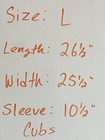 Size: L
Length: 26½"
Width: 25½"
Sleeve: 10½"
Cubs